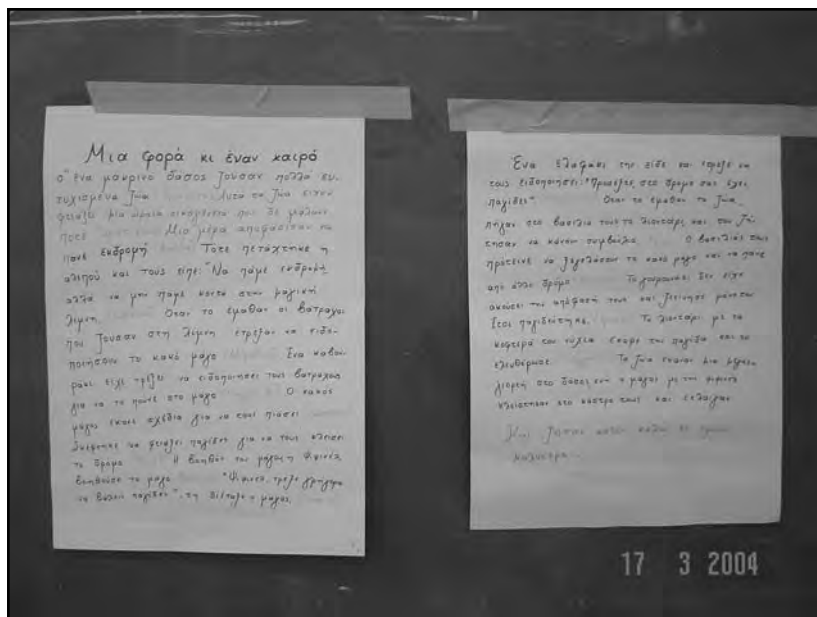 Μια φορά κι έναν καιρό
σ' ένα μακρινό δάσος ζούσαν πολλά ευ-
τυχισμένα ζώα Αυτά τα ζώα είχαν
φτιάξει μια ωραία οικογένεια που δε μάλωνε
ποτέ Μια μέρα αποφάσισαν να
πάνε εκδρομή Τότε πετάχτηκε η
αλεπού και τους είπε: "Να πάμε εκδρομή
αλλά να μην πάμε κοντά στην μαγική
λίμνη. Όταν το έμαθαν οι βάτραχοι
που ζούσαν στη λίμνη έτρεξαν να ειδο-
ποιήσουν το κακό μάγο Ένα καβου-
ράκι είχε τρέξει να ειδοποιήσει τους βατράχους
για να το πούνε στο μάγο Ο κακός
μάγος έκανε σχέδια για να τους πιάσει
Σκέφτηκε να φτιάξει παγίδες για να τους κλείσει
το δρόμο Η βοηθός του μάγου, η Φιφινέλ,
βοηθούσε το μάγο "Φιφινέλ, τρέξε γρήγορα
να βάλεις παγίδες", τη διέταξε ο μάγος.
Ένα ελαφάκι την είδε και έτρεξε να
τους ειδοποιήσει: "Προσέξτε, στο δρόμο σας έχει
παγίδες" Όταν το έμαθαν τα ζώα,
πήγαν στο βασιλιά τους το λιοντάρι και του ζή-
τησαν να κάνουν συμβούλιο Ο βασιλιάς τους
πρότεινε να ξεγελάσουν το κακό μάγο και να πάνε
από άλλο δρόμο Το γουρουνάκι δεν είχε
ακούσει την απόφασή τους και ξεκίνησε μόνο του
Έτσι παγιδεύτηκε. Το λιοντάρι με τα
κοφτερά του νύχια έκοψε την παγίδα και το
ελευθέρωσε. Τα ζώα έκαναν μια μεγάλη
γιορτή στο δάσος ενώ ο μάγος με την Φιφινέλ
κλείστηκαν στο κάστρο τους και έκλαιγαν
Και ζήσαν αυτοί καλά κι εμείς
καλύτερα...
17 3 2004